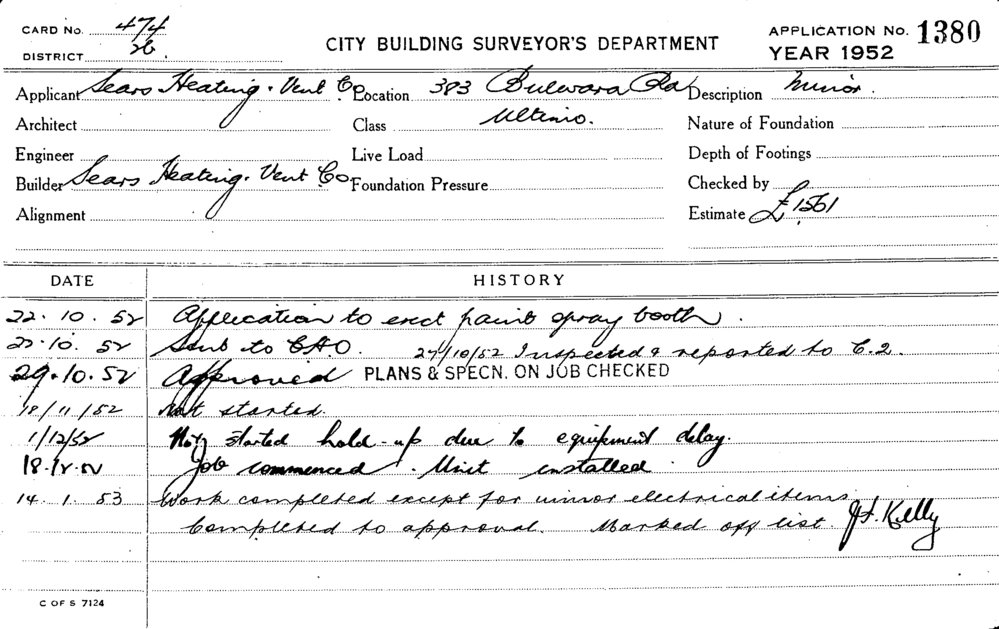 CARD No. 474
DISTRICT 26.
CITY BUILDING SURVEYOR'S DEPARTMENT
APPLICATION No. 1380
YEAR 1952
Applicant Sears Heating. Vent Co Location 383 Bulwara Rd Description Minor.
Architect Class Ultimo. Nature of Foundation
Engineer Live Load Depth of Footings
Builder Sears Heating. Vent Co. Foundation Pressure Checked by
Alignment Estimate £1561
DATE HISTORY
22.10.52 Application to erect paint spray booth.
22.10.52 Sent to CAO. 27/10/52 Inspected & reported to C.2.
29.10.52 Approved PLANS & SPECN. ON JOB CHECKED
18/11/52 Not started.
1/12/52 Not started hold-up due to equipment delay.
18.12.52 Job commenced. Unit installed.
14.1.53 Work completed except for minor electrical items
Completed to approval. Marked off list. Kelly
C OF S 7124